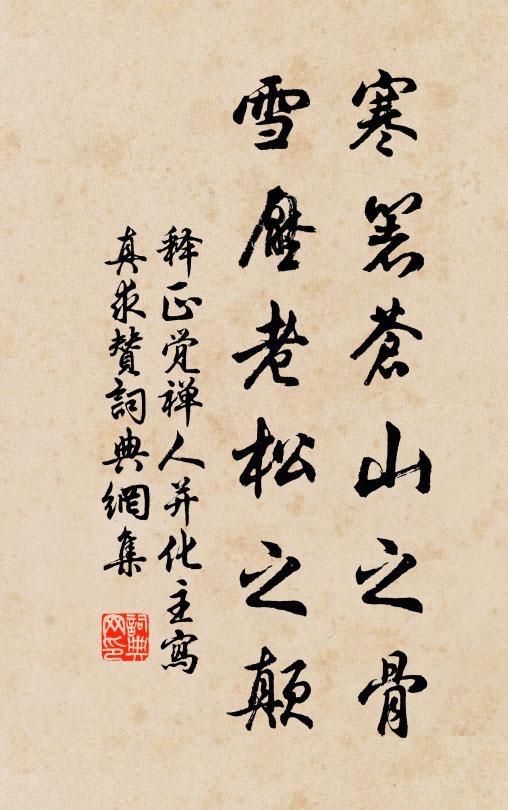 寒著苍山之骨
雪壓老松之颠
释正觉禅人并化主寫
真求赞詞典網集
詞典
网印